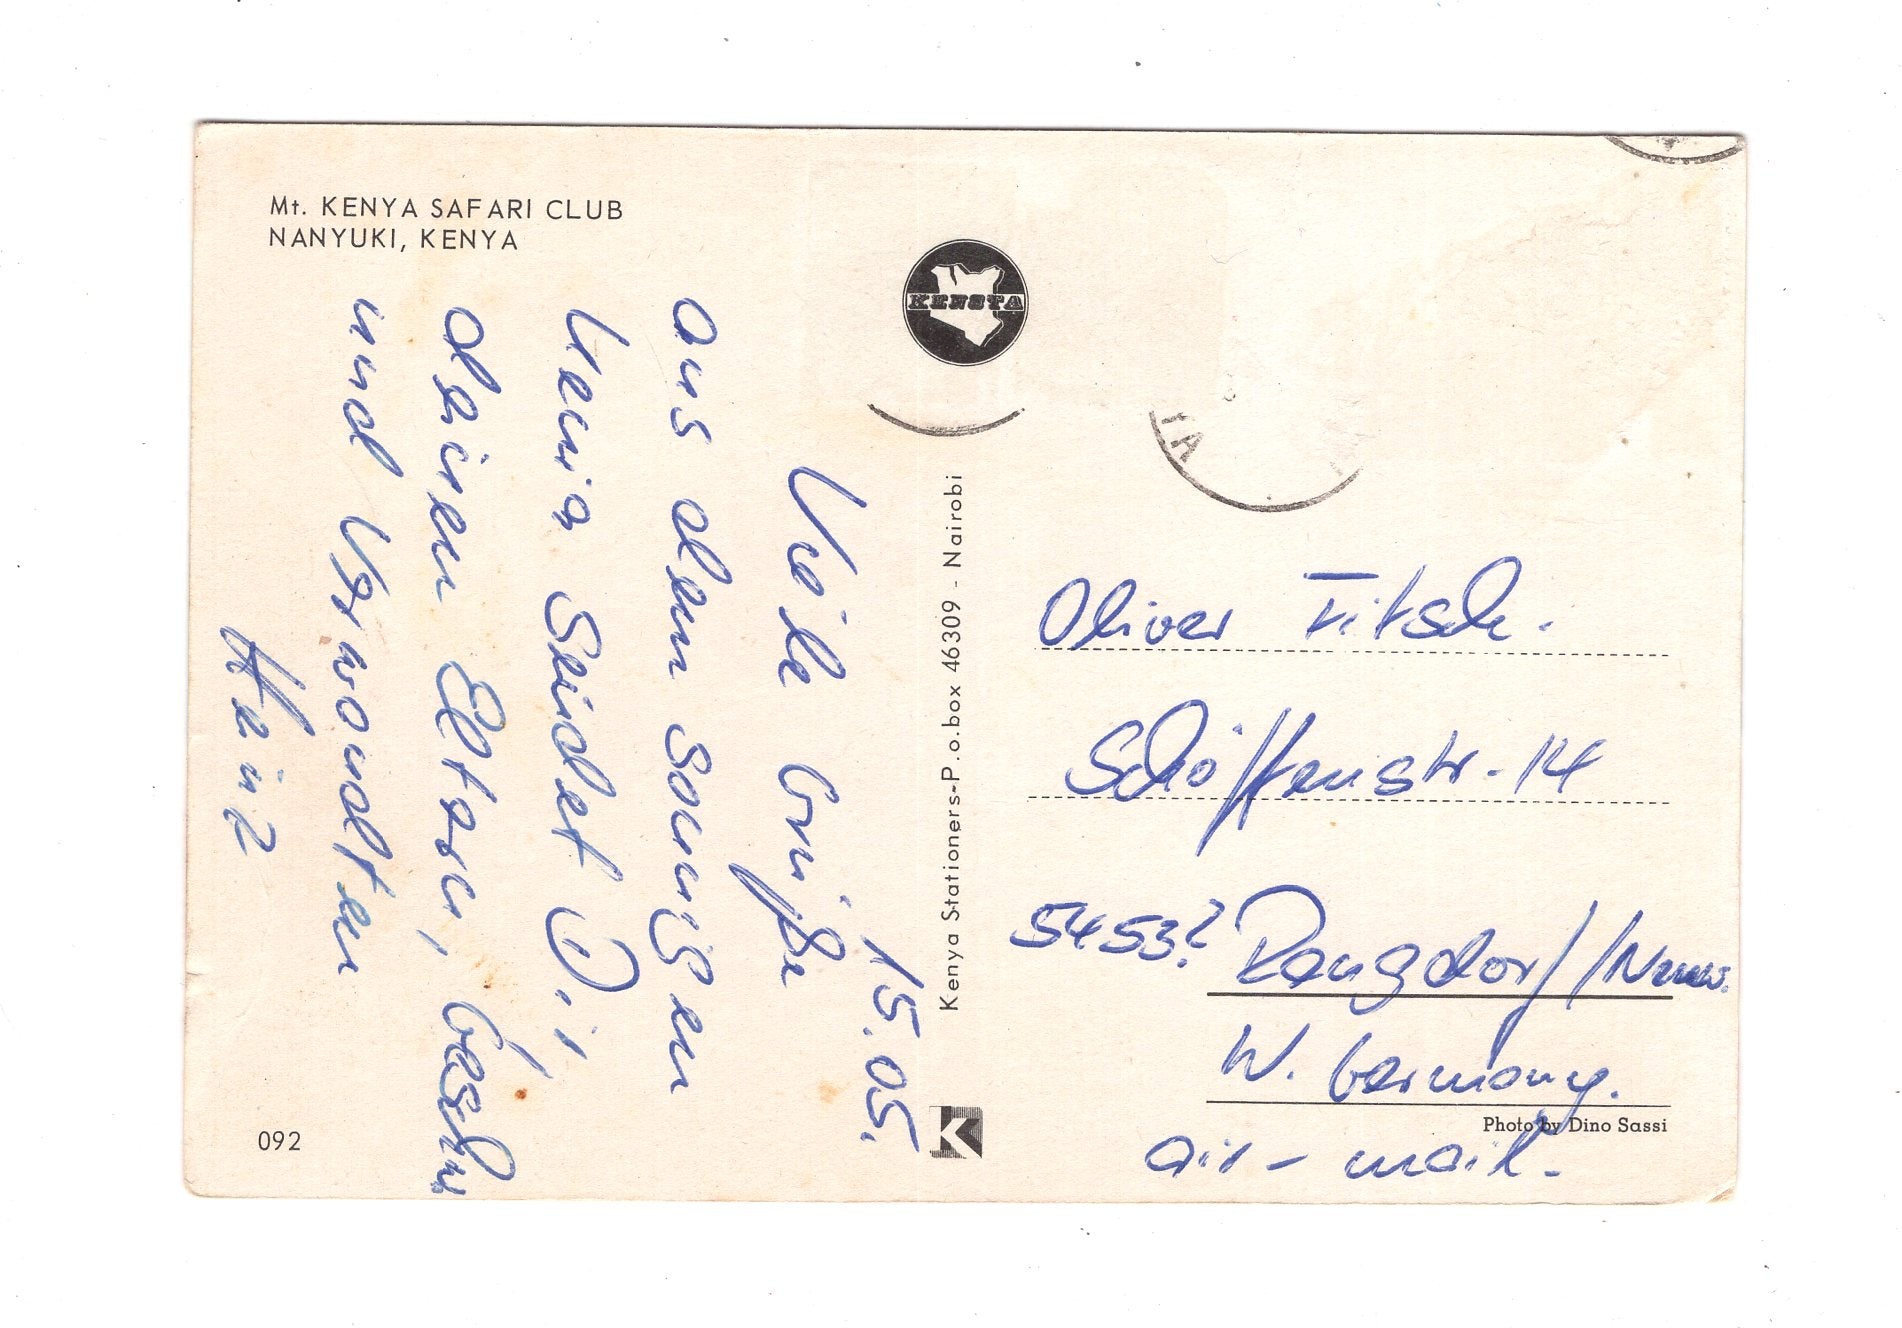 Mt. KENYA SAFARI CLUB
NANYUKI, KENYA
KENSTA
15.05.
Viele Grüße
aus dem sonnigen
Kenia sendet Dir,
deinen Eltern, Geschw.
und Verwandten
Heinz
Kenya Stationers-P.o.box 46309 - Nairobi
TA
Oliver Fitsch.
Schöffenstr. 14
5453? Rengsdorf/Neuw.
W. Germany.
Photo by Dino Sassi
air-mail.
092
K